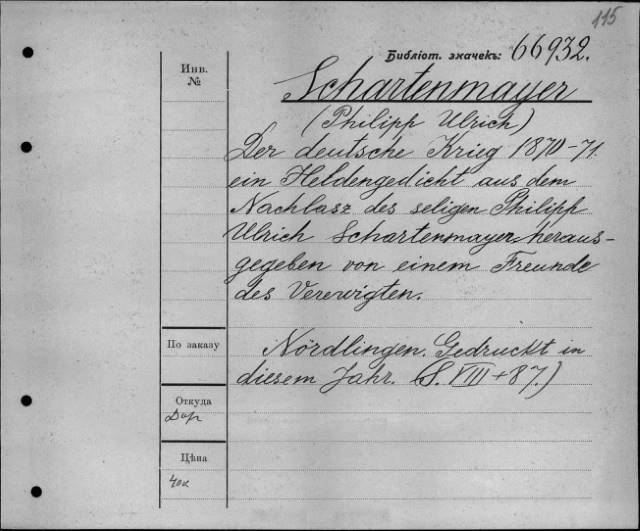 115
Библіот. значекъ: 66932.
Инв.
№
Schartenmayer
(Philipp Ulrich)
Der deutsche Krieg 1870-71.
ein Heldengedicht aus dem
Nachlasz des seligen Philipp
Ulrich Schartenmayer, heraus-
gegeben von einem Freunde
des Verewigten.
По заказу
Nördlingen. Gedruckt in
diesem Jahr. (S. VIII + 87.)
Откуда
Дар
Цѣна
40к